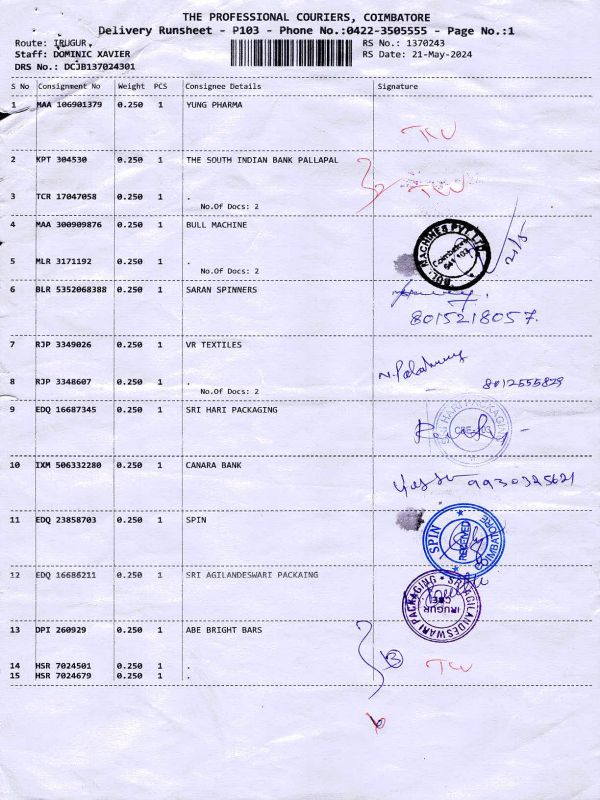 THE PROFESSIONAL COURIERS, COIMBATORE
Delivery Runsheet - P103 - Phone No.:0422-3505555 - Page No.:1
Route: IRUGUR
RS No.: 1370243
Staff: DOMINIC XAVIER
RS Date: 21-May-2024
DRS No.: DCJB137024301
S No Consignment No Weight PCS Consignee Details Signature
1 MAA 106901379 0.250 1 YUNG PHARMA
2 KPT 304530 0.250 1 THE SOUTH INDIAN BANK PALLAPAL
3 TCR 17047058 0.250 1 .
No.Of Docs: 2
4 MAA 300909876 0.250 1 BULL MACHINE
BULL MACHINES PVT LTD
Coimbatore
641 103
21/5
5 MLR 3171192 0.250 1 .
No.Of Docs: 2
6 BLR 5352068388 0.250 1 SARAN SPINNERS
8015218057.
7 RJP 3349026 0.250 1 VR TEXTILES
8 RJP 3348607 0.250 1 .
8012555829
No.Of Docs: 2
9 EDQ 16687345 0.250 1 SRI HARI PACKAGING
SRI HARI PACKAGING
CBE-103
10 IXM 506332280 0.250 1 CANARA BANK
9930325621
11 EDQ 23858703 0.250 1 SPIN
SPIN
RECEIVED
COIMBATORE
12 EDQ 16686211 0.250 1 SRI AGILANDESWARI PACKAING
SRI AGILANDESWARI PACKAGING
IRUGUR
13 DPI 260929 0.250 1 ABE BRIGHT BARS
14 HSR 7024501 0.250 1 .
15 HSR 7024679 0.250 1 .